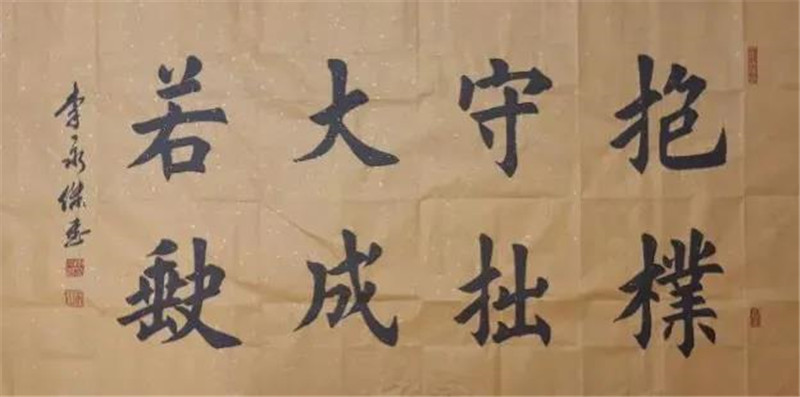 抱樸
守拙
大成
若缺
李永傑书